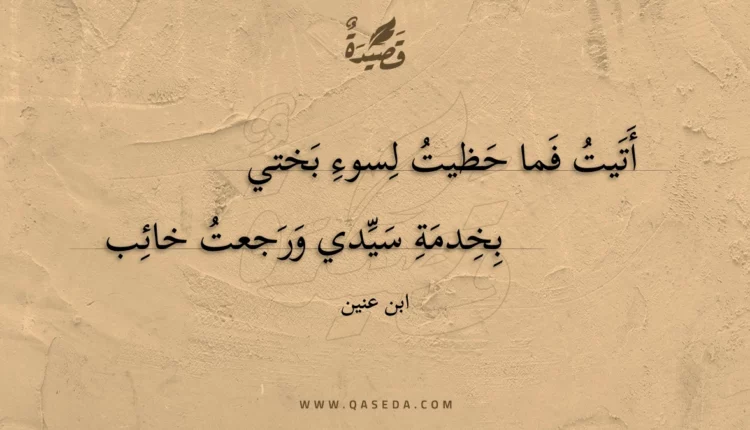 قَصِيدَةٌ
أَتَيتُ فَما حَظيتُ لِسوءِ بَختي
بِخِدمَةِ سَيِّدي وَرَجعتُ خائِب
ابن عنين
WWW.QASEDA.COM